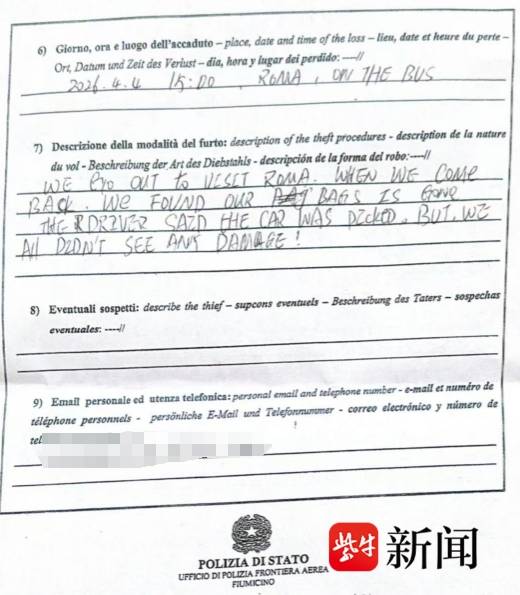 6) Giorno, ora e luogo dell'accaduto – place, date and time of the loss – lieu, date et heure du perte –
Ort, Datum und Zeit des Verlust – dia, hora y lugar del perdido: ----//
2026.4.4 15:00, ROMA, ON THE BUS
7) Descrizione della modalità del furto: description of the theft procedures - description de la nature
du vol - Beschreibung der Art des Diebstahls – descripción de la forma del robo:----//
WE GO OUT to VISIT ROMA. WHEN WE COME
BACK. WE FOUND OUR BAGS IS GONE
THE DRIVER SAID THE CAR WAS PICKED, BUT, WE
All DIDN'T SEE ANY DAMAGE!
8) Eventuali sospetti: describe the thief – supcons eventuels – Beschreibung des Taters – sospechas
eventuales: ----//
9) Email personale ed utenza telefonica: personal email and telephone number - e-mail et numéro de
téléphone personnels - persönliche E-Mail und Telefonnummer - correo electrónico y número de
POLIZIA DI STATO
UFFICIO DI POLIZIA FRONTIERA AEREA
FIUMICINO
紫牛 新闻